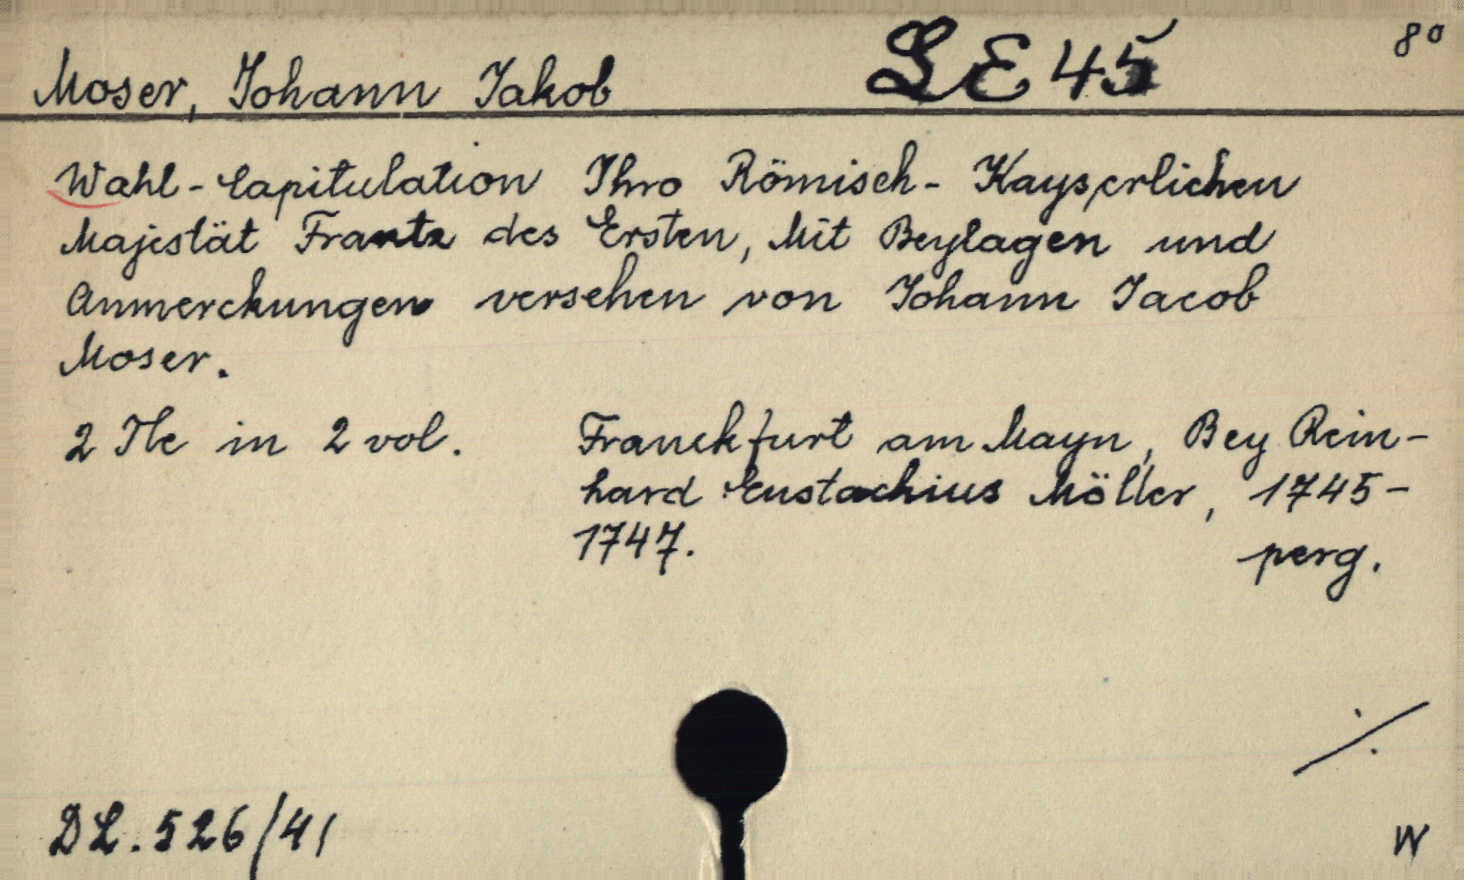 Moser, Johann Jakob LE 45 8°
Wahl-Capitulation Ihro Römisch-Kayserlichen
Majestät Frantz des Ersten, Mit Beylagen und
Anmerckungen versehen von Johann Jacob
Moser.
2 Tle in 2 vol. Franckfurt am Mayn, Bey Rein-
hard Eustachius Möller, 1745-
1747.
perg.
./.
DL. 526/41
W